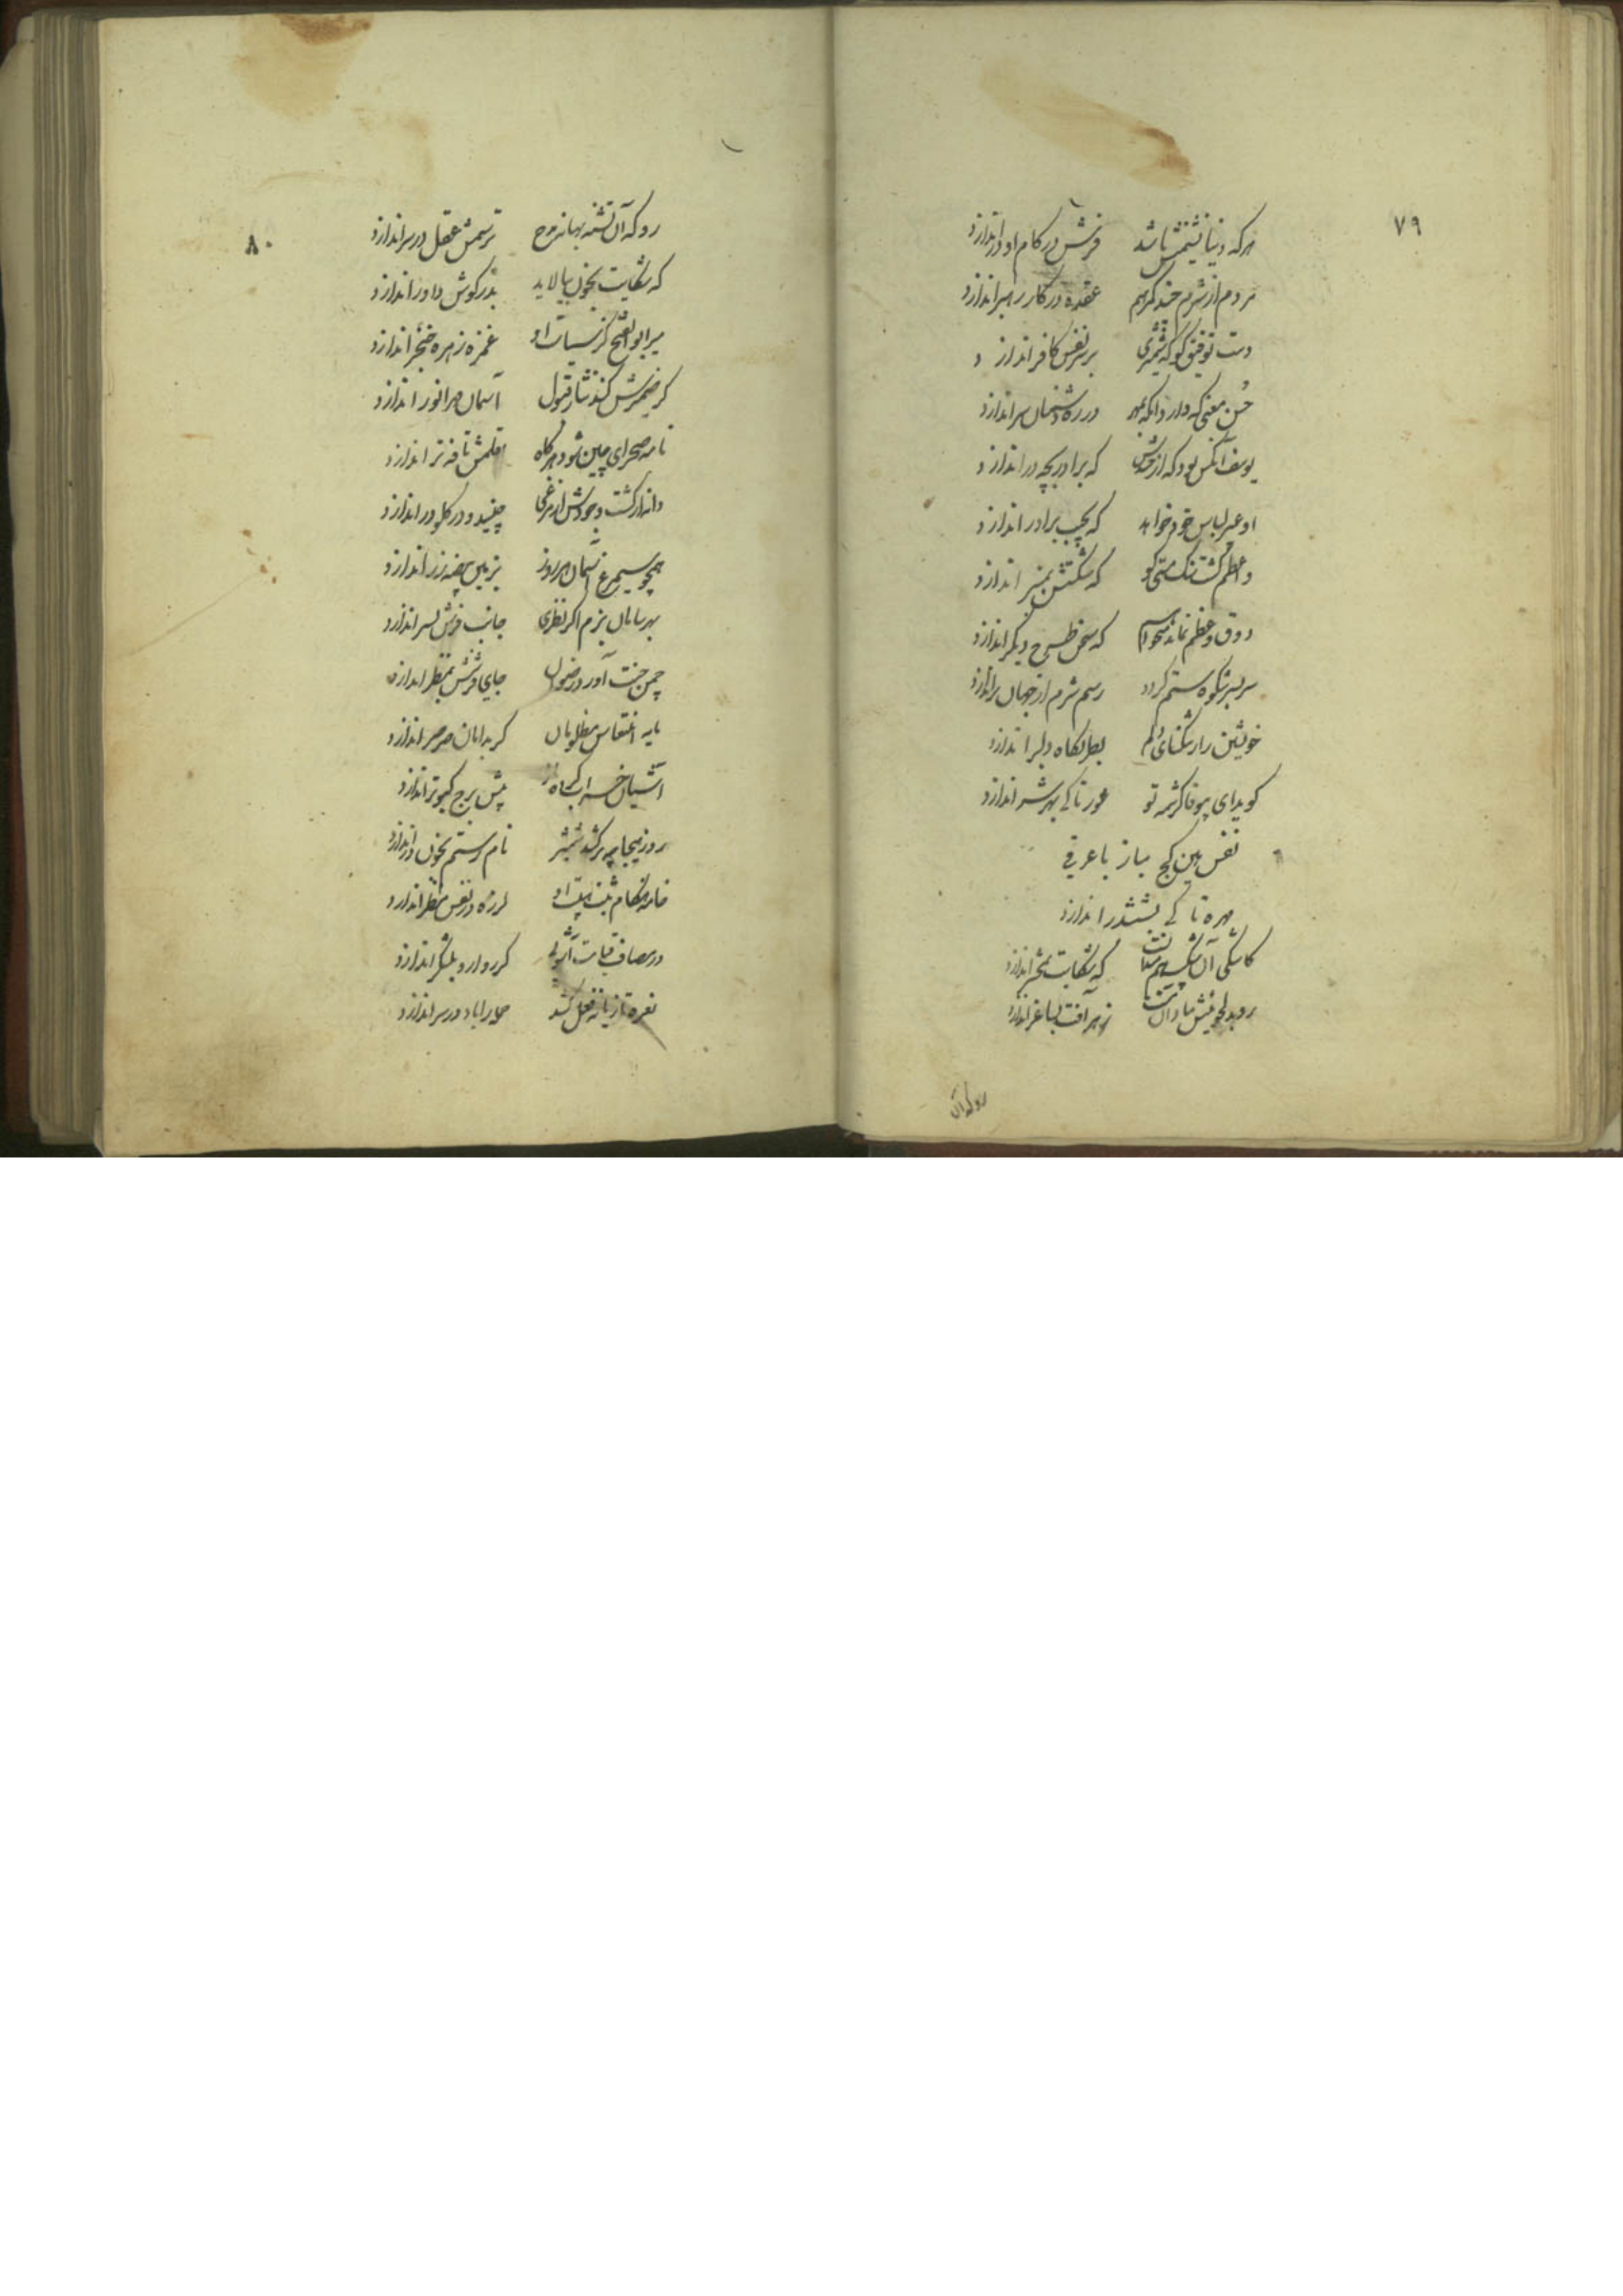 ۷۹
هرکه دنیا نشیمنش باشد فرش در کام اودر اندازد
مردم از شرم چند گمرهیم عقده در کار رهبر اندازد
دست توفیق کو که شمشیری بر سر نفس کافر اندازد
حسن معنی که دارد آنکه بمهر در ره دشمنان سر اندازد
یوسف آنکس بود که از که برادر بچه در اندازد
او عیر لباس خود خواهد که بجیب برادر اندازد
واعظم گشت تنگ مستی کو که شکستش بمنبر اندازد
ذوق وعظم نماند میخواهم که سخن طرح دیگر اندازد
سر بسر شکوه ستم گردد رسم شرم از جهان براندازد
خویشتن را ز تنگنای دلم بصلکاه دلبر اندازد
گوید ای بیوفا کرشمه تو عور تا کی بهر شر اندازد
نفس بین کج مباز با عرفی
مهره تا کی بششدر اندازد
کاشکی آن که شکایت بمحشر اندازد
رو بدلجوئیش مبادا زهر آفت بساغر اندازد
روکه آن
۸۰
روکه آن تشنه بهانه مرح ترسمش عقل در سر اندازد
که شکایت بخون بیالاید بدر گوش داور اندازد
میر ابوالفتح کز سیاست او غمزه ز مهره خنجر اندازد
گر ضمیرش کند نثار قبول آسمان مهر انور اندازد
نامه صحرای چین شود هرگاه قلمش نافه تر اندازد
دانه از کشت وجودش ار مرغی چیند و در گلو در اندازد
همچو سیمرغ آسمان هر روز بزمین بیضه زر اندازد
بهر سامان بزم اگر نظری جانب فرش بستر اندازد
چمن جنت آورد رضوان جای فرشش بمنظر اندازد
پایه انتقاس مظلومان گر بدامان صرصر اندازد
آشیان خس ار گاه پیش برج کبوتر اندازد
روز هیجا چو برکشد شمشیر نام رستم بخون در اندازد
خامه هنگام ثبت هیبت او لرزه در نفس مسطر اندازد
در مصاف قیامت آشوبی کر رو او رو بلشکر اندازد
نعره تازیانه فعل کشد در سر اندازد